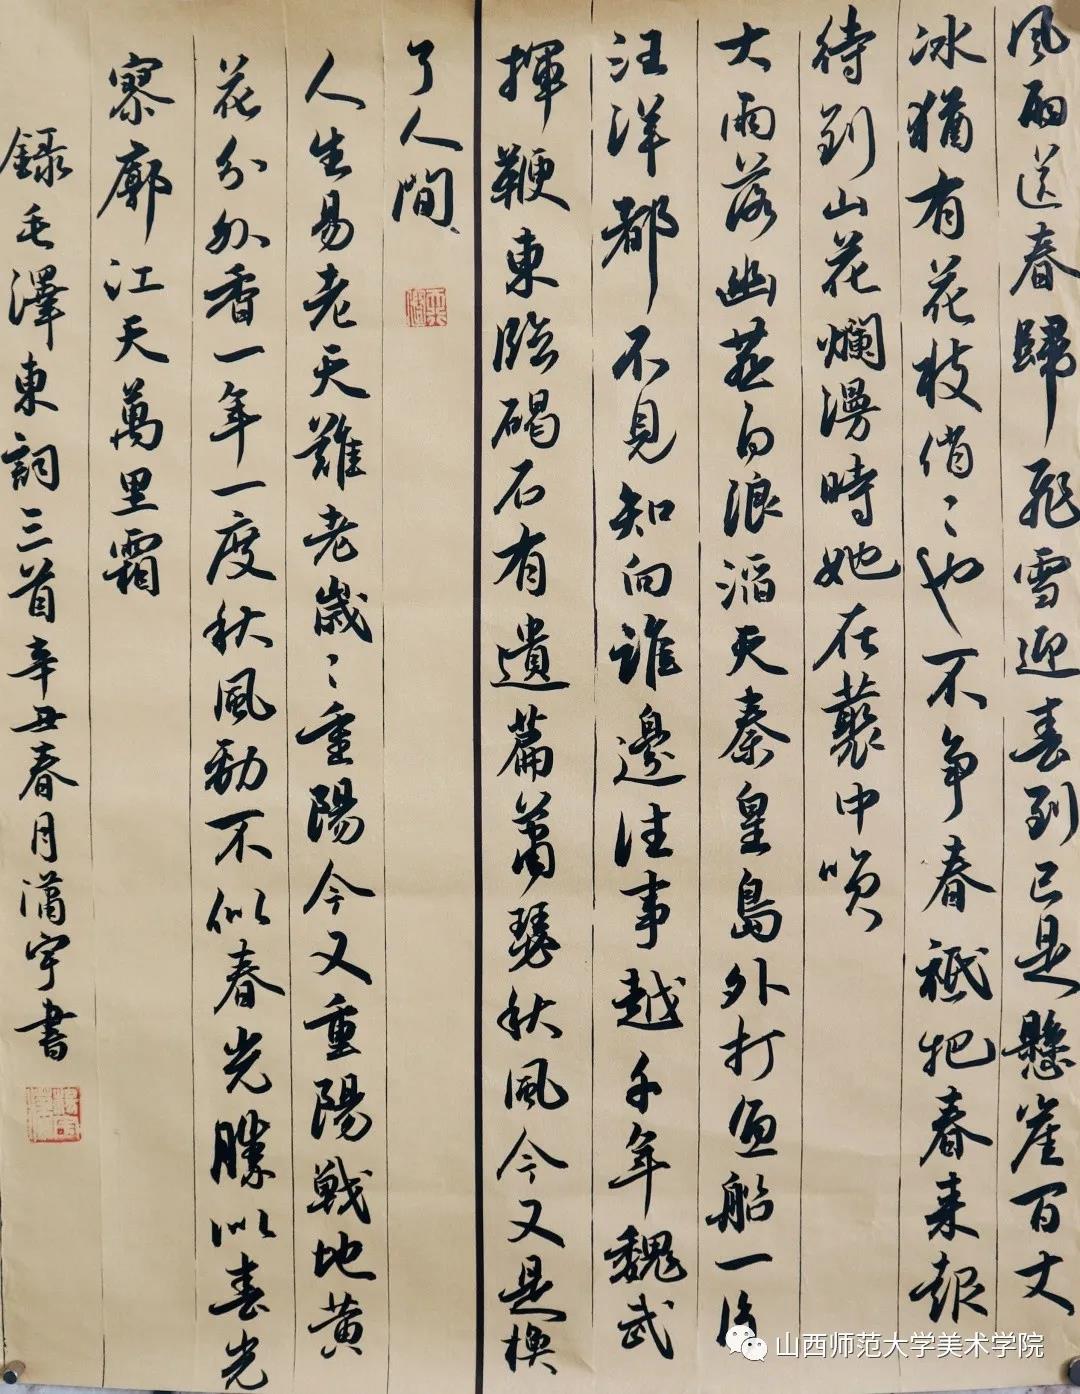 風雨送春歸飛雪迎春到已是懸崖百丈
冰猶有花枝俏〻也不争春祇把春来報
待到山花爛漫時她在叢中咲
大雨落幽燕白浪滔天秦皇島外打魚船一片
汪洋都不見知向誰邊往事越千年魏武
揮鞭東臨碣石有遺篇蕭瑟秋風今又是換
了人間
人生易老天難老歲〻重陽今又重陽戰地黄
花分外香一年一度秋風勁不似春光勝似春光
寥廓江天萬里霜
錄毛澤東詞三首辛丑春月瀟宇書
山西师范大学美术学院